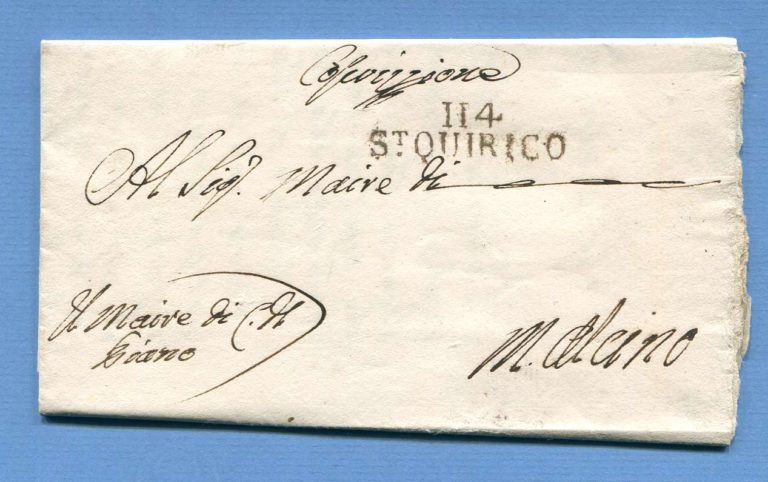 Coscrizzione
114
ST QUIRICO
Al Sigr. Maire di
Il Maire di C. Il
Piano
M. Alcino